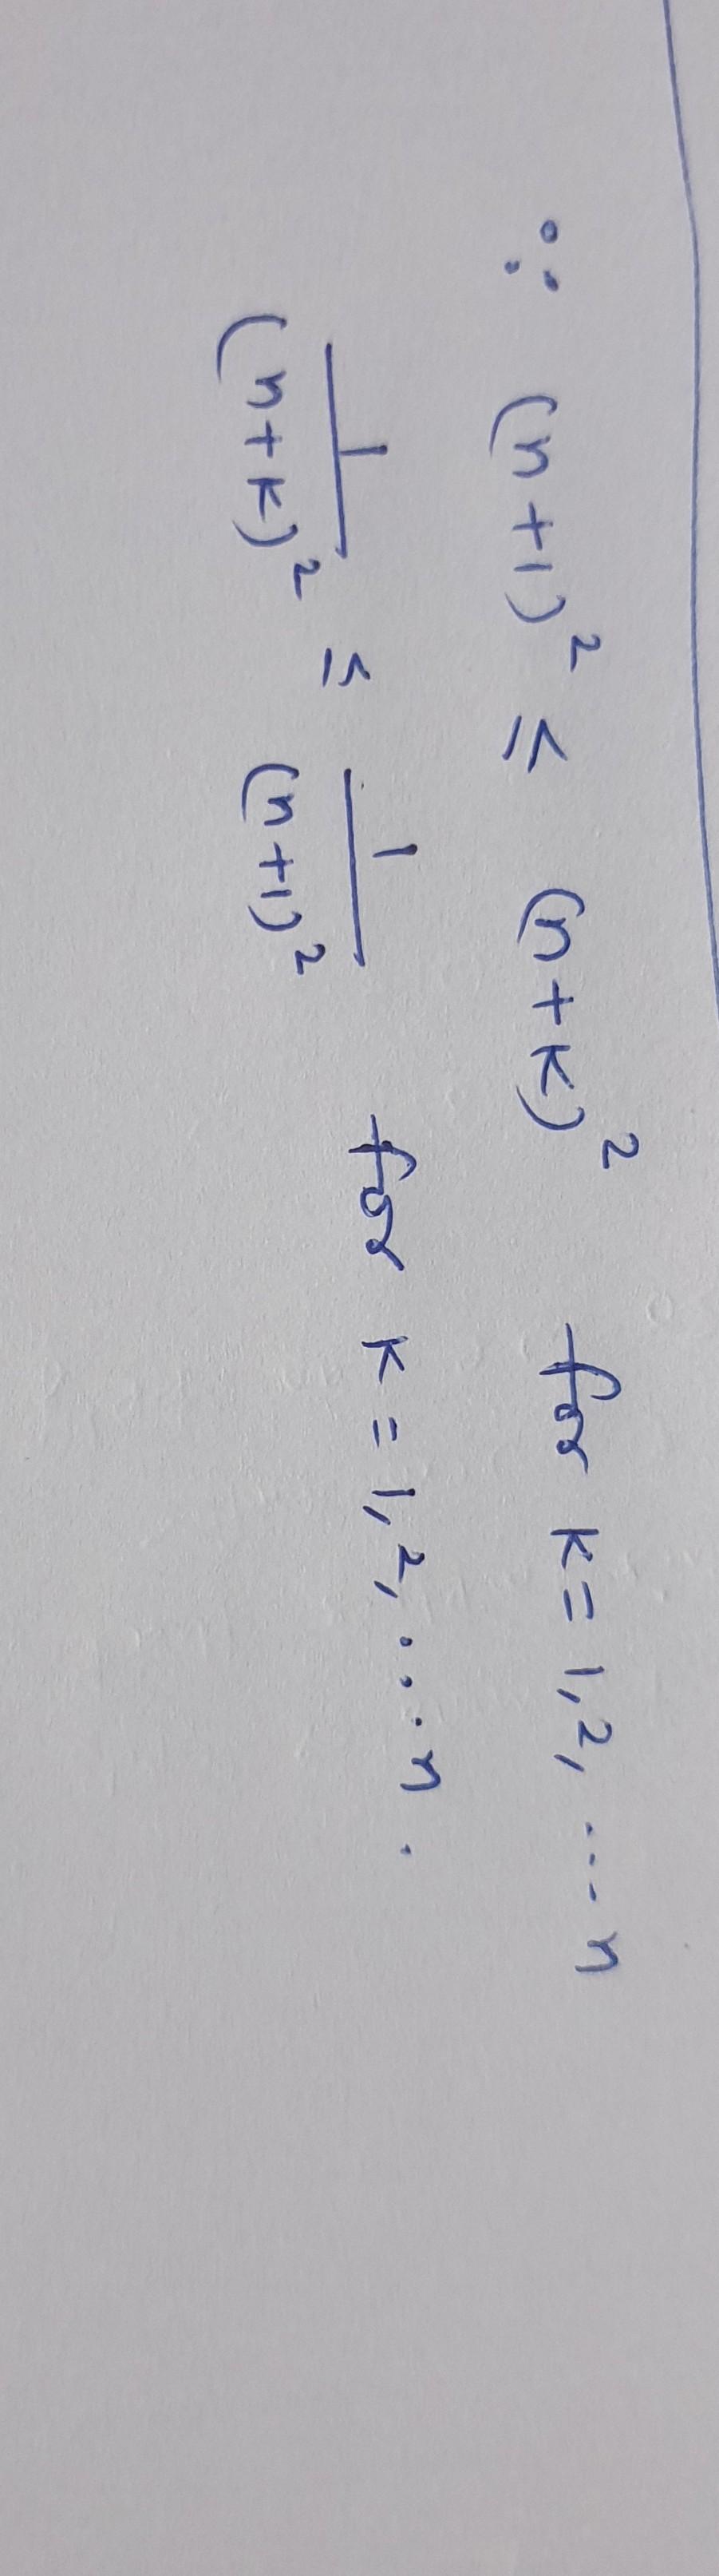 ∵ (n+1)² ≤ (n+k)² for k = 1, 2, ... n
1/(n+k)² ≤ 1/(n+1)² for k = 1, 2, ... n.